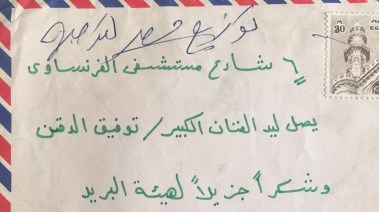 توزيع مصر الجديدة
٦ شارع مستشفى الفرنساوى
يصل ليد الفنان الكبير / توفيق الدقن
وشكراً جزيلاً لهيئة البريد